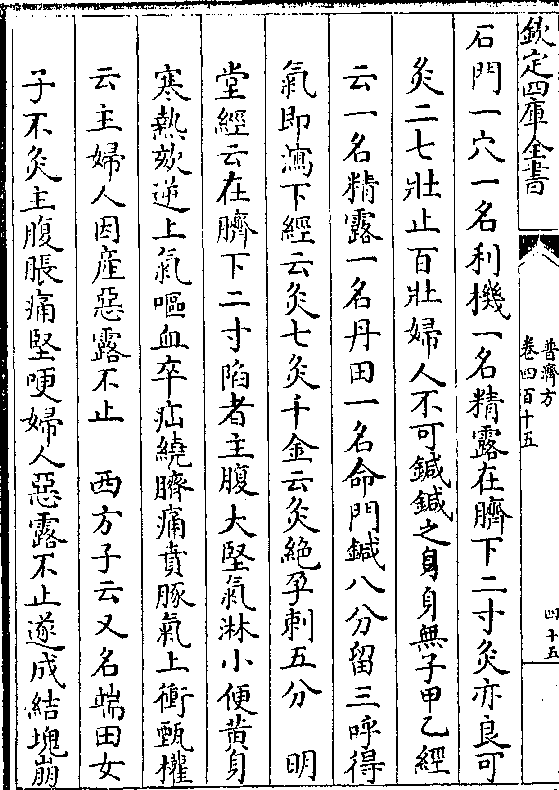 欽定四庫全書
普濟方
卷四百十五
四十五
石門一穴一名利機一名精露在臍下二寸灸亦良可
灸二七壯止百壯婦人不可鍼鍼之身身無子甲乙經
云一名精露一名丹田一名命門鍼八分留三呼得
氣即瀉下經云灸七灸千金云灸絶孕刺五分　明
堂經云在臍下二寸陷者主腹大堅氣淋小便黄身
寒熱欬逆上氣嘔血卒疝繞臍痛賁豚氣上衝甄權
云主婦人因産惡露不止　西方子云又名端田女
子不灸主腹脹痛堅哽婦人惡露不止遂成結塊崩